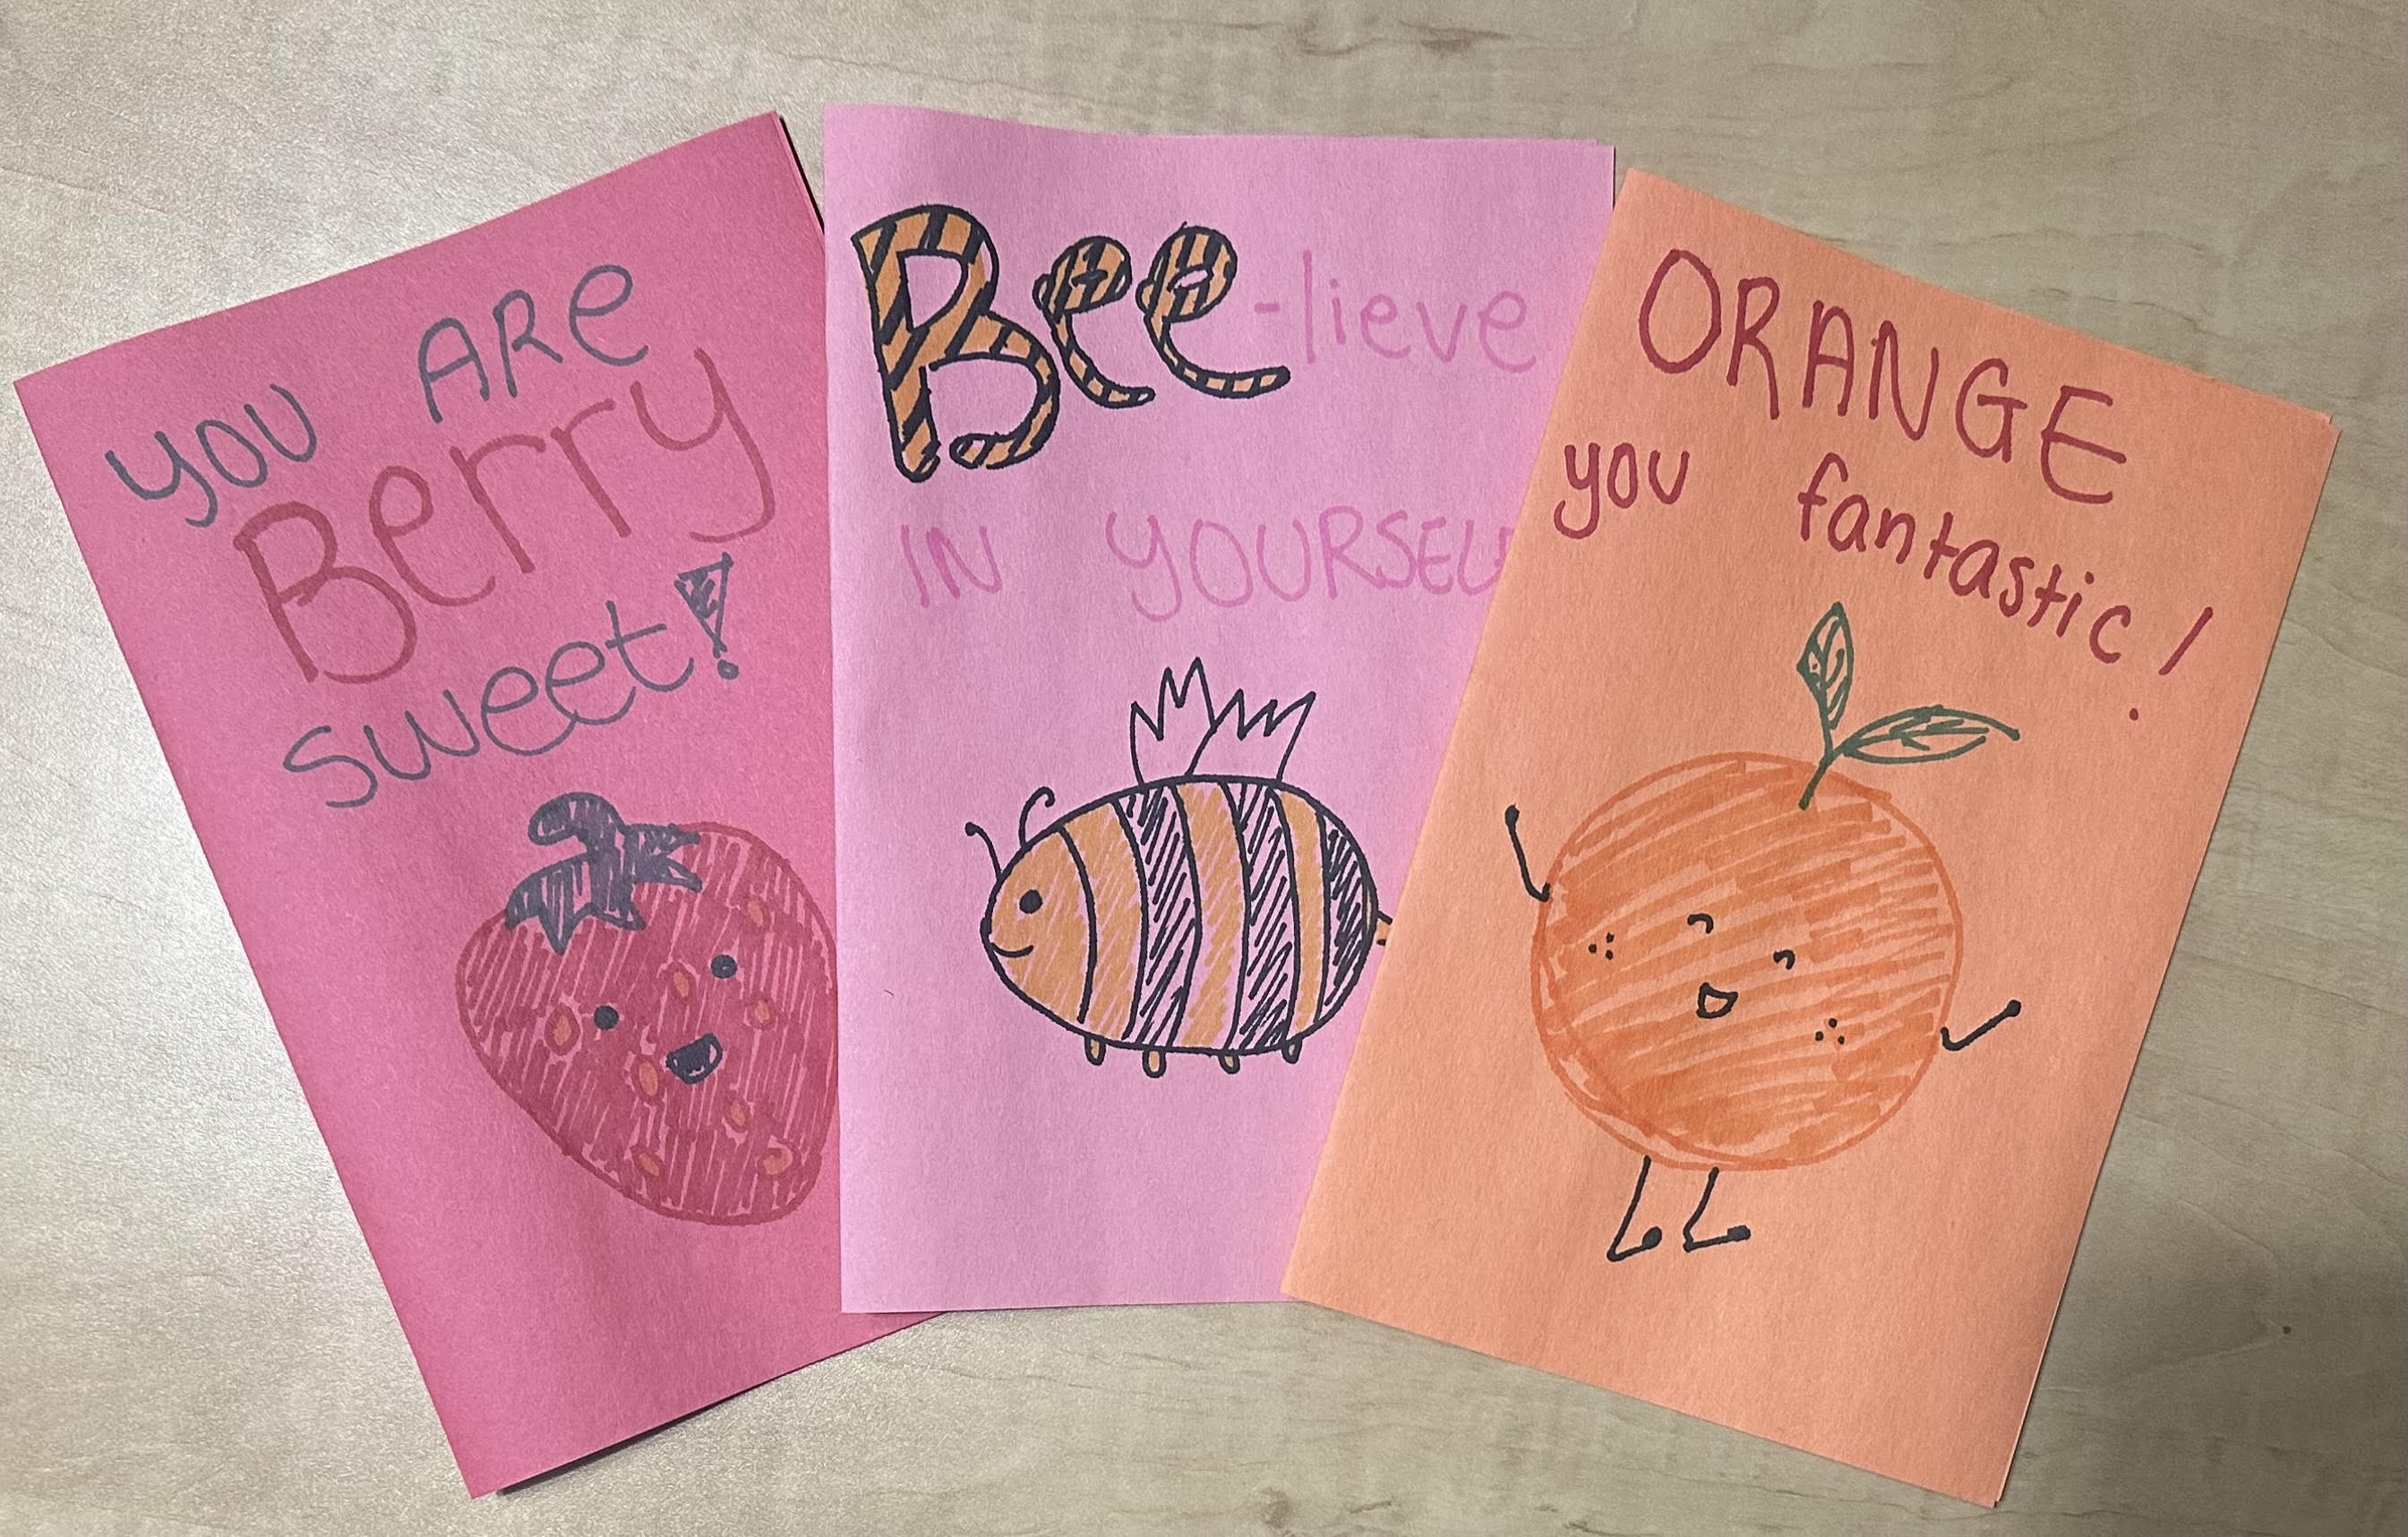 YOU ARe
Berry
sweet!
Bee-lieve
IN YOURSELF
ORANGE
you fantastic!